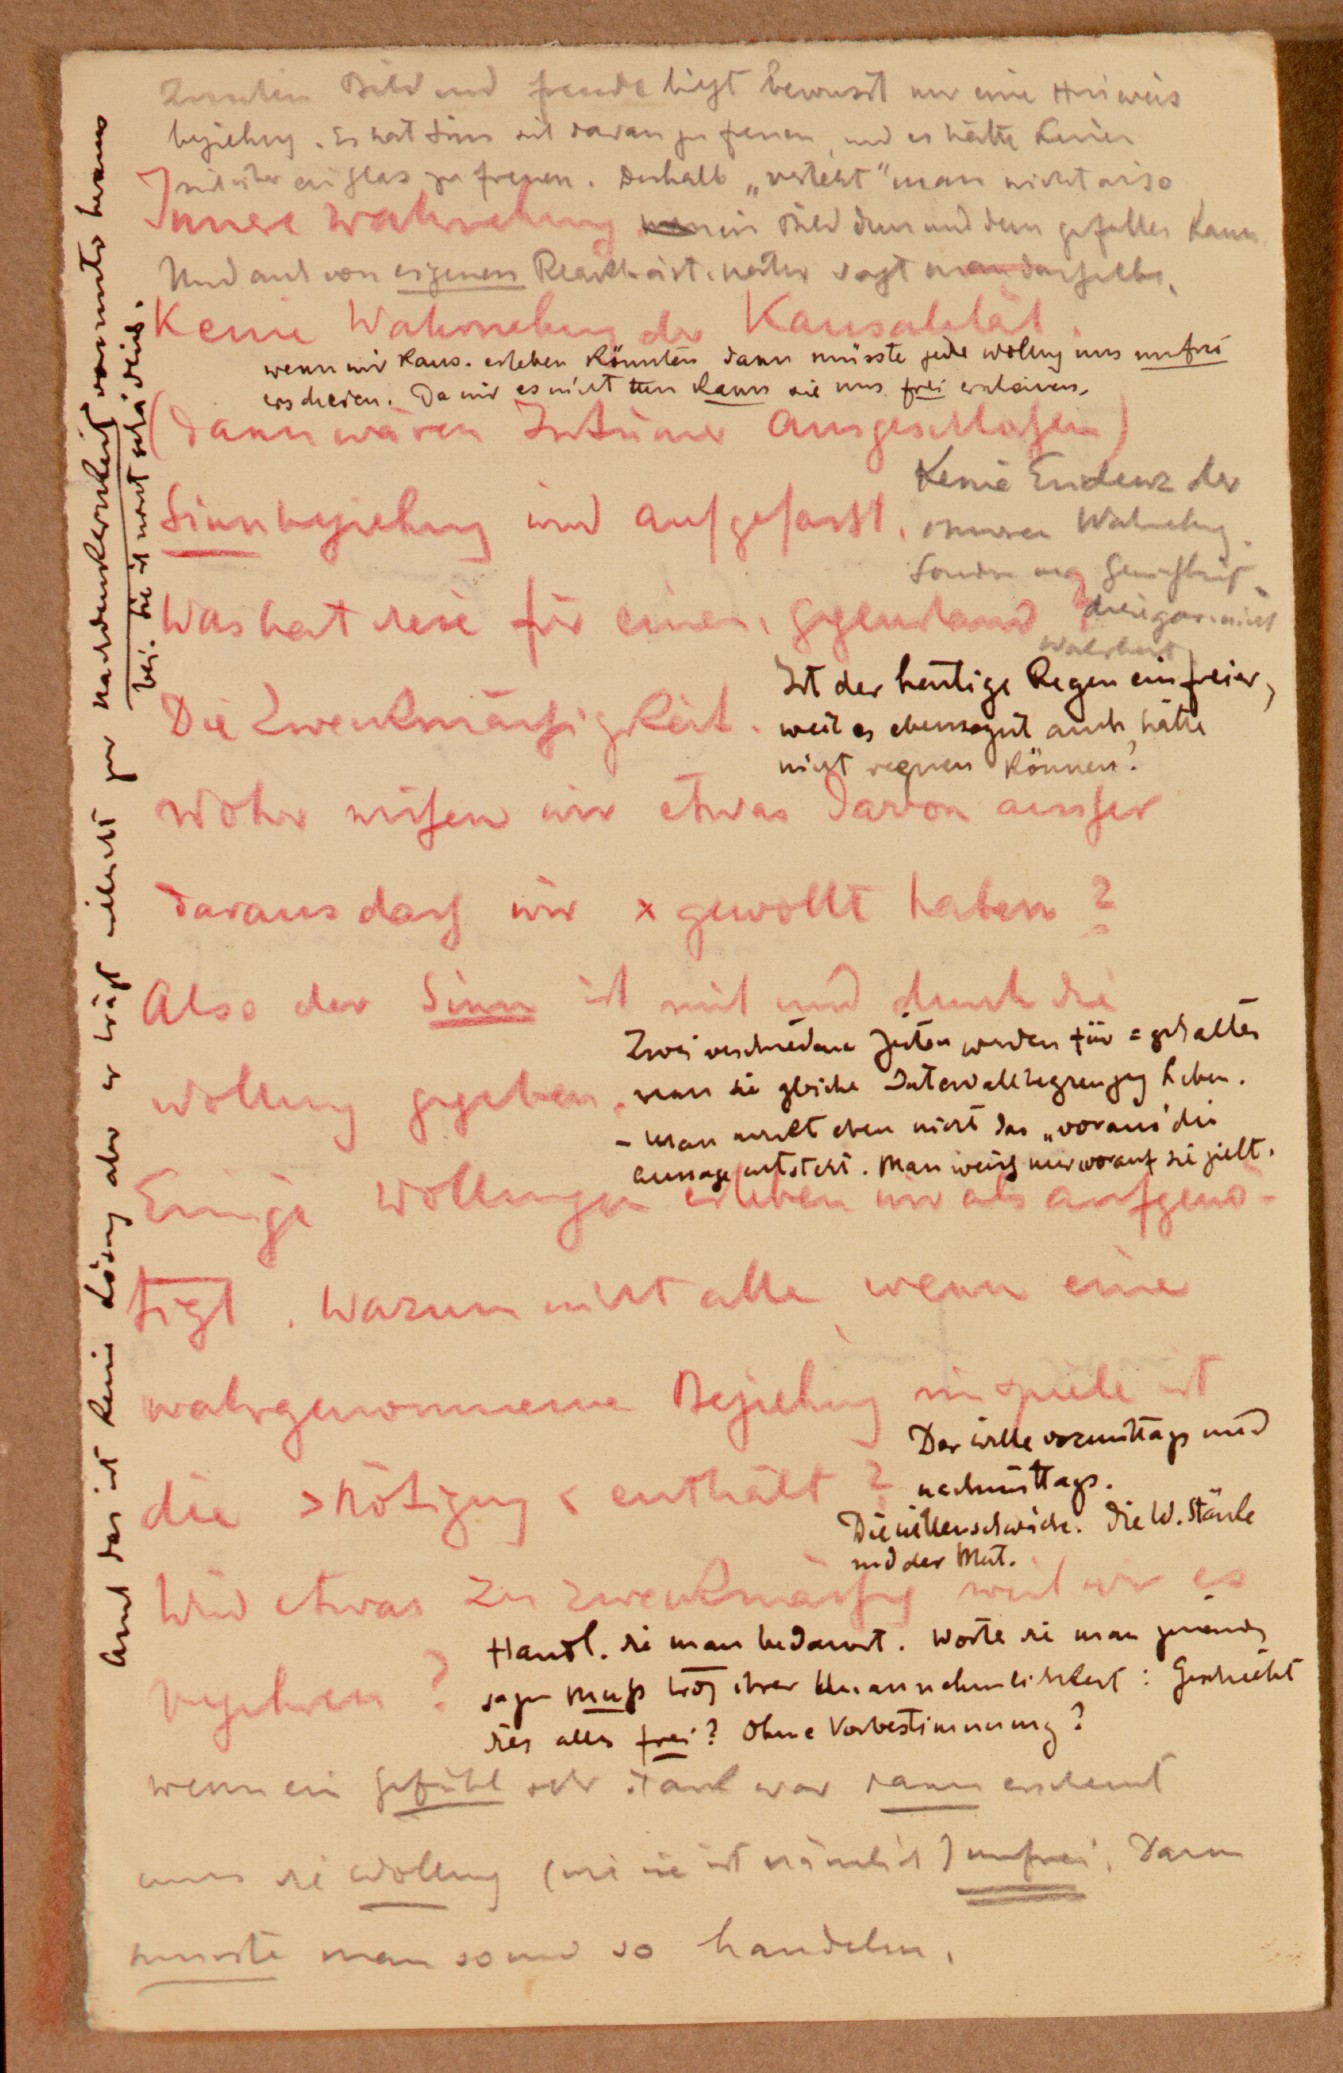 Zwischen Bild und Freude liegt bewusst nur eine Hinweis
beziehung. Es hat Sinn sich daran zu freuen, und es hätte keinen
sich über ein Glas zu freuen. Deshalb „versteht" man nicht also
Innere Wahrnehmung
ein Bild dem und dem gefallen kann.
Und auch von eigenen sagt man dasselbe.
Keine Wahrnehmung der Kausalität.
wenn wir Kaus. erleben könnten dann müsste jede Wollung uns unfrei
erscheinen. Da wir es nicht tun kann sie uns frei erscheinen.
(dann wären Irrtümer ausgeschlossen)
Keine Evidenz der
Sinnbeziehung wird aufgefasst.
inneren Wahrnehmg.
Sondern
Was hat diese für einen Gegenstand?
die gar nicht
Wahrheit
Ist der heutige Regen ein freier,
Die Zweckmässigkeit.
weil es ebensogut auch hätte
nicht regnen können?
Woher wissen wir etwas davon ausser
daraus dass wir x gewollt haben?
Also der Sinn ist mit und durch die
Zwei verschiedene Zeiten werden für = gehalten
Wollung gegeben.
wenn sie gleiche Intervallbegrenzung haben.
- Man merkt eben nicht das „woraus" die
Aussage entsteht. Man weiss nur worauf sie zielt.
Einige Wollungen erleben wir als aufgenö-
tigt. Warum nicht alle wenn eine
wahrgenommene Beziehung im Spiele ist
Der Wille vormittags und
die >Nötigung< enthält?
nachmittags.
Die Willensschwäche. Die W. Stärke
und der Mut.
Wird etwas zu zweckmässig weil wir es
Handl. die man bedauert. Worte die man
begehren?
sagen muss trotz ihrer Unannehmlichkeit: Geschieht
dies alles frei? Ohne Vorbestimmung?
wenn ein Gefühl sehr stark war dann erscheint
uns die Wollung (wie sie ist nämlich) unfrei. Dann
musste man so und so handeln.
Und das ist keine Lösung aber er trägt vielleicht zur Nachdenklichkeit
bei. Sie ist nicht schädlich.